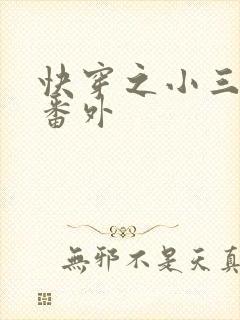 快穿之小三
番外
無邪不是天真